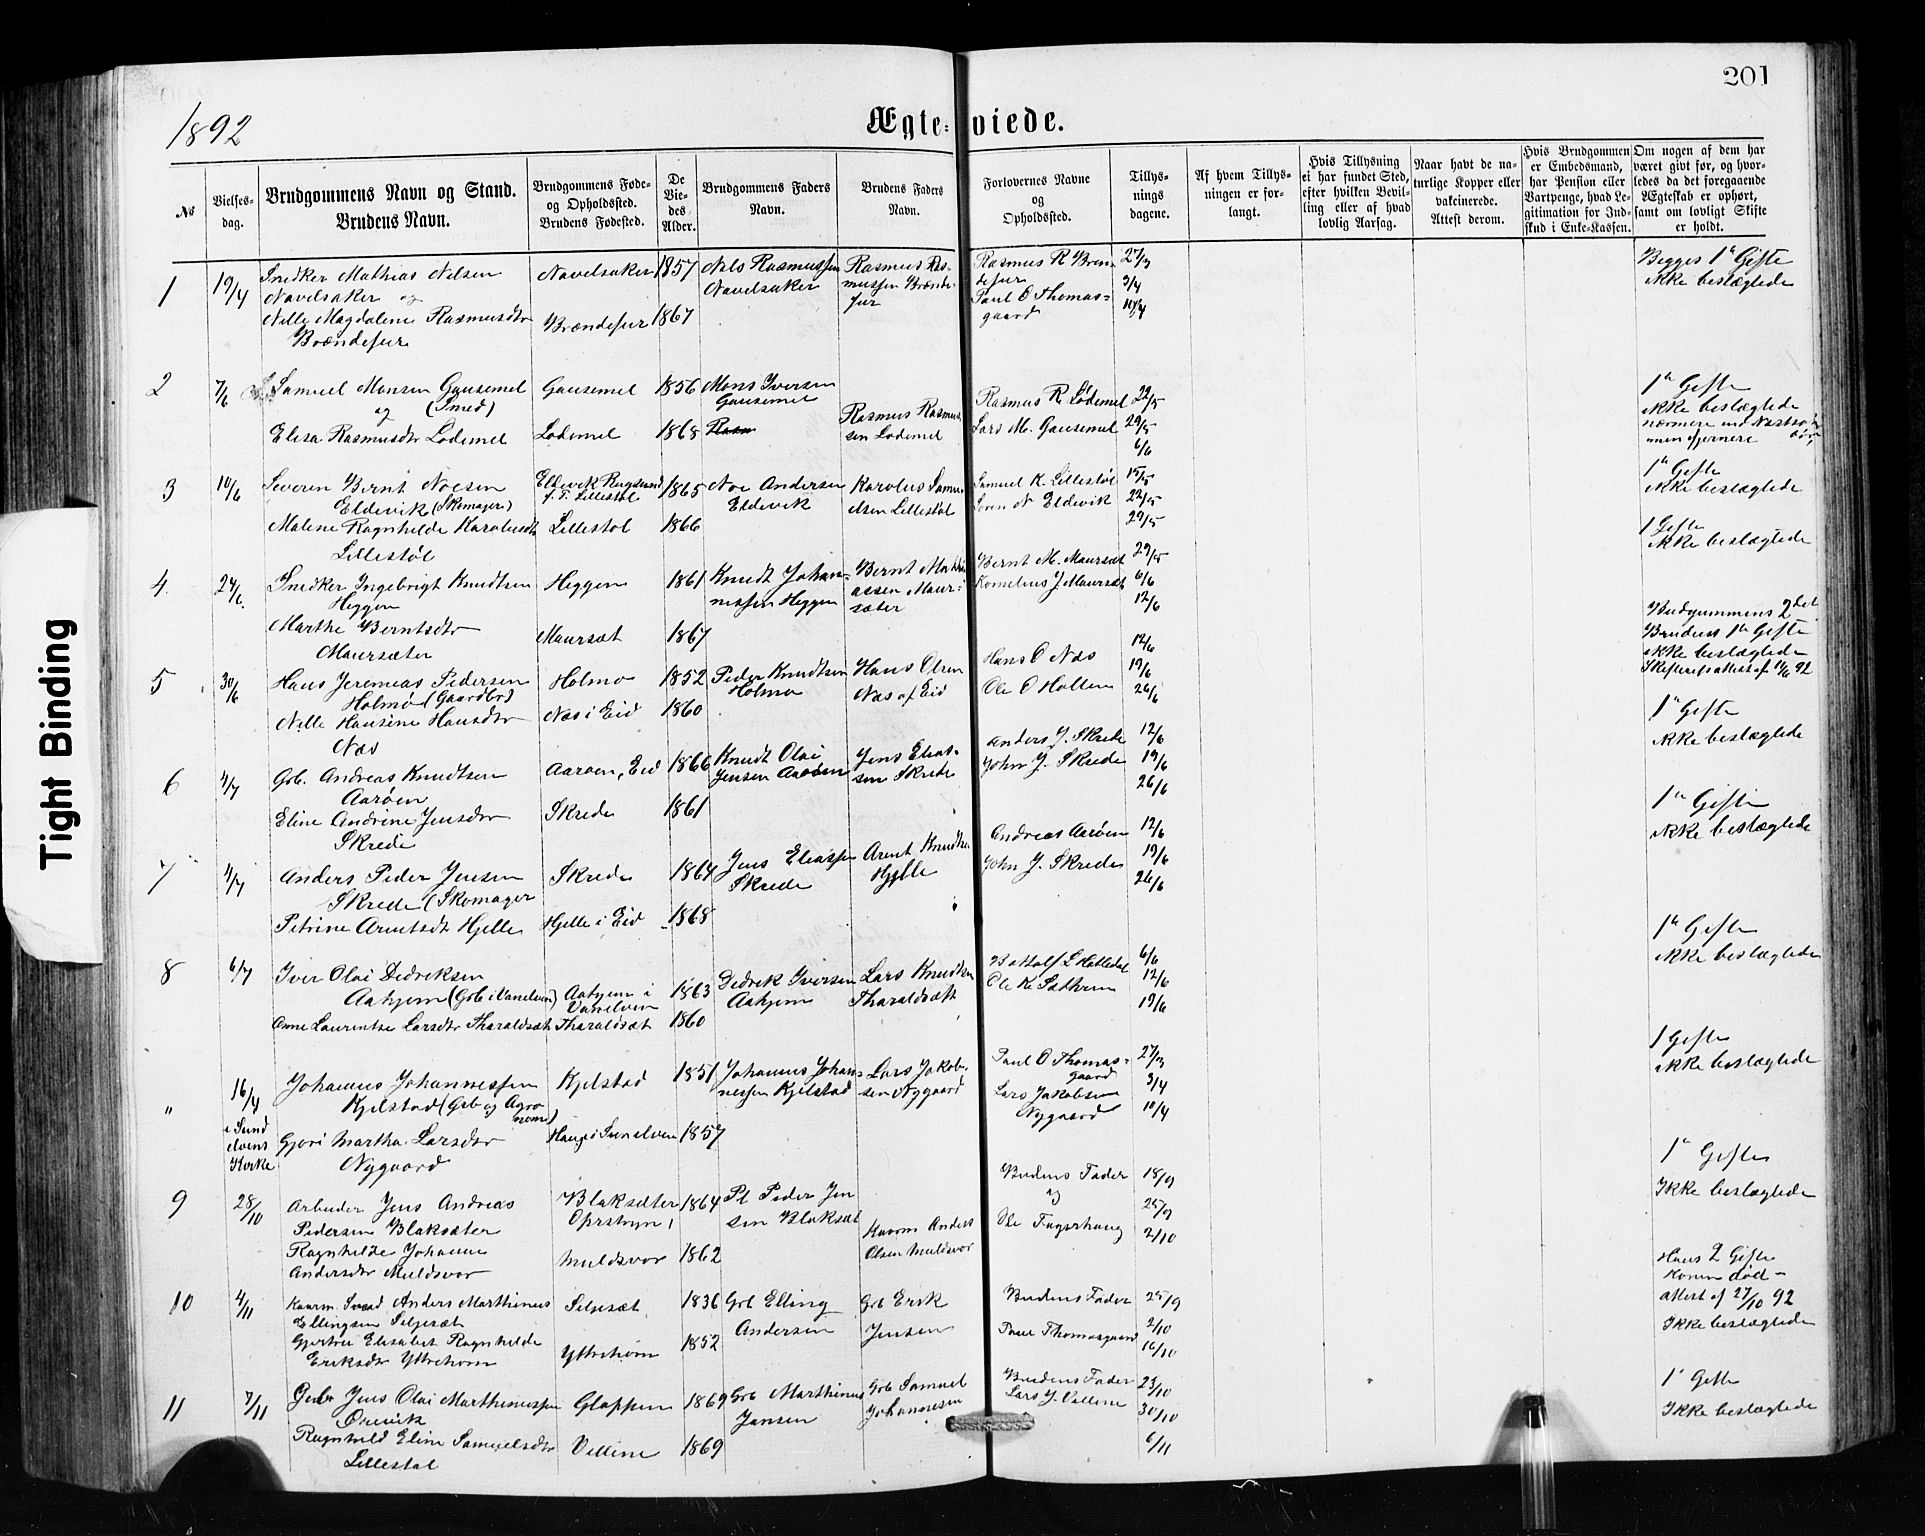 201
1892
Ægte-viede.
№
Vielses-
dag.
Brudgommens Navn og Stand.
Brudens Navn.
Brudgommens Føde-
og Opholdssted.
Brudens Fødested.
De
Vie-
des
Alder.
Brudgommens Faders
Navn.
Brudens Faders
Navn.
Forlovernes Navne
og
Opholdssted.
Tillys-
nings
dagene.
Af hvem Tillys-
ningen er for-
langt.
Hvis Tillysning
ei har fundet Sted,
efter hvilken Bevil-
ling eller af hvad
lovlig Aarsag.
Naar havt de na-
turlige Kopper eller
vakcinerede.
Attest derom.
Hvis Brudgommen
er Embedsmand,
har Pension eller
Vartpenge, hvad Le-
gitimation for Ind-
skud i Enke-Kassen.
Om nogen af dem har
været givt før, og hvor-
ledes da det foregaaende
Ægteskab er ophørt,
samt om lovligt Skifte
er holdt.
1
19/4
Snedker Mathias Nilsen
Navelsaker og
Nille Magdalene Rasmusdtr
Brændefur
Navelsaker
Brændefur
1857
1867
Nils Rasmussen
Navelsaker
Rasmus Ras-
mussen Brænde-
fur
Rasmus R Bræn-
defur
Paul O Thomas-
gaard
27/3
3/4
10/4
Begges 1ste Gifte
ikke beslægtede
2
7/6
Samuel Monsen Gausemel
og (Smed)
Elisa Rasmusdtr Lødemel
Gausemel
Lødemel
1856
1868
Mons Iversen
Gausemel
Rasmus Rasmus-
sen Lødemel
Rasmus R. Lødemel
Lars M. Gausemel
22/5
29/5
6/6
1ste Gifte
ikke beslægtede
nærmere end Næstsø-
3
10/6
Severin Bernt Noesen
Eldevik (Skomager)
Malene Ragnhilde Karolusdtr
Lillestøl
Eldevik Rugsund
f.T. Lillestøl
Lillestøl
1865
1866
Noe Andersen
Eldevik
Karolus Samu-
elsen Lillestøl
Samuel K. Lillestøl
Søren N Eldevik
15/5
22/5
29/5
1ste Gifte
ikke beslægtede
4
24/6
Snedker Ingebrigt Knudtsen
Heggen
Marthe Berntsdtr
Maursæter
Heggen
Maursæt
1861
1867
Knudt Johan-
nesen Heggen
Bernt Mathi-
assen Maur-
sæter
Bernt M. Maursæt
Kornelius J Maursæt
29/5
6/6
12/6
1 Gifte
ikke beslægtede
5
30/6
Hans Jeremias Pedersen
Holmø (Gaardbr)
Nille Hansine Hansdtr
Næs
Holmø
Næs i Eid
1852
1860
Peder Knudtsen
Holmø
Hans Olsen
Næs af Eid
Hans O Næs
Ole O Holten
12/6
19/6
26/6
Brudgummens 2det
Brudens 1ste Gifte
ikke beslægtede
Skifteretsattest af 11/6 92
6
4/7
Grb. Andreas Knudtsen
Aarøen
Eline Andrine Jensdtr
Skrede
Aarøen, Eid
Skrede
1866
1861
Knudt Olai
Jensen Aarøen
Jens Elias-
sen Skrede
Anders J. Skrede
John J. Skrede
12/6
19/6
26/6
1ste Gifte
ikke beslægtede
7
4/7
Anders Peder Jensen
Skrede (Skomager
Petrine Arentsdt Hjelle
Skrede
Hjelle i Eid
1864
1868
Jens Eliassen
Skrede
Arent Knudtsen
Hjelle
Andreas Aarøen
John J. Skrede
12/6
19/6
26/6
1ste Gifte
ikke beslægtede
8
6/7
Iver Olai Dedriksen
Aahjem (Grb i Vanelven)
Anne Laurentse Larsdtr Tharaldsæt
Aahjem i
Vanelven
Tharaldsæt
1863
1860
Dedrik Iversen
Aahjem
Lars Knudtsen
Tharaldsæt
Ole K. Sæthren
6/6
12/6
19/6
1ste Gifte
ikke beslægtede
"
16/4
i Sund
elvens
Kirke
Johannes Johannessen
Kjelstad (Grb og Agro
nom)
Gjøri Martha Larsdtr
Nygaard
Kjelstad
Hauge i Sunelven
1851
1857
Johannes Johan-
nessen Kjelstad
Lars Jakob-
sen Nygaard
Paul O Thomas-
gaard
Lars Jakobsen
Nygaard
27/3
3/4
10/4
1 Gifte
ikke beslægtede
9
28/10
Arbeider Jens Andreas
Pedersen Blaksæter
Ragnhilde Johanne
Andersdtr Muldsvor
Blaksæter
Opstryn,
Muldsvor
1864
1862
Pl Peder Jen
sen Blaksæt
Kaarm Anders
Olsen Muldsvor
Brudens Fader
og
Ole Fagerhaug
18/9
25/9
2/10
1ste Gifte
Ikke beslægtede
10
4/11
Kaarm. Smed Anders Marthinus
Ellingsen Seljesæt
Gjertrue Elisabet Ragnhilde
Eriksdtr Yttrehorn
Seljesæt
Yttrehorn
1836
1852
Grb Elling
Andersen
Grb Erik
Jensen
Brudens Fader
Paul Thomasgaard
25/9
2/10
16/10
Hans 2 Gifte
Konen død -
attest af 27/10 92
Ikke beslægtede
11
7/11
Jens Olai Marthinussen
Ørevik
Ragnhild Eline Samuelsdtr
Lillestøl
Gloppen
Velline
1869
1869
Grb Marthinus
Jansen
Grb Samuel
Johannesen
Brudens Fader
Lars J. Velline
23/10
30/10
6/11
1ste Gifte
Ikke beslægtede
Tight Binding